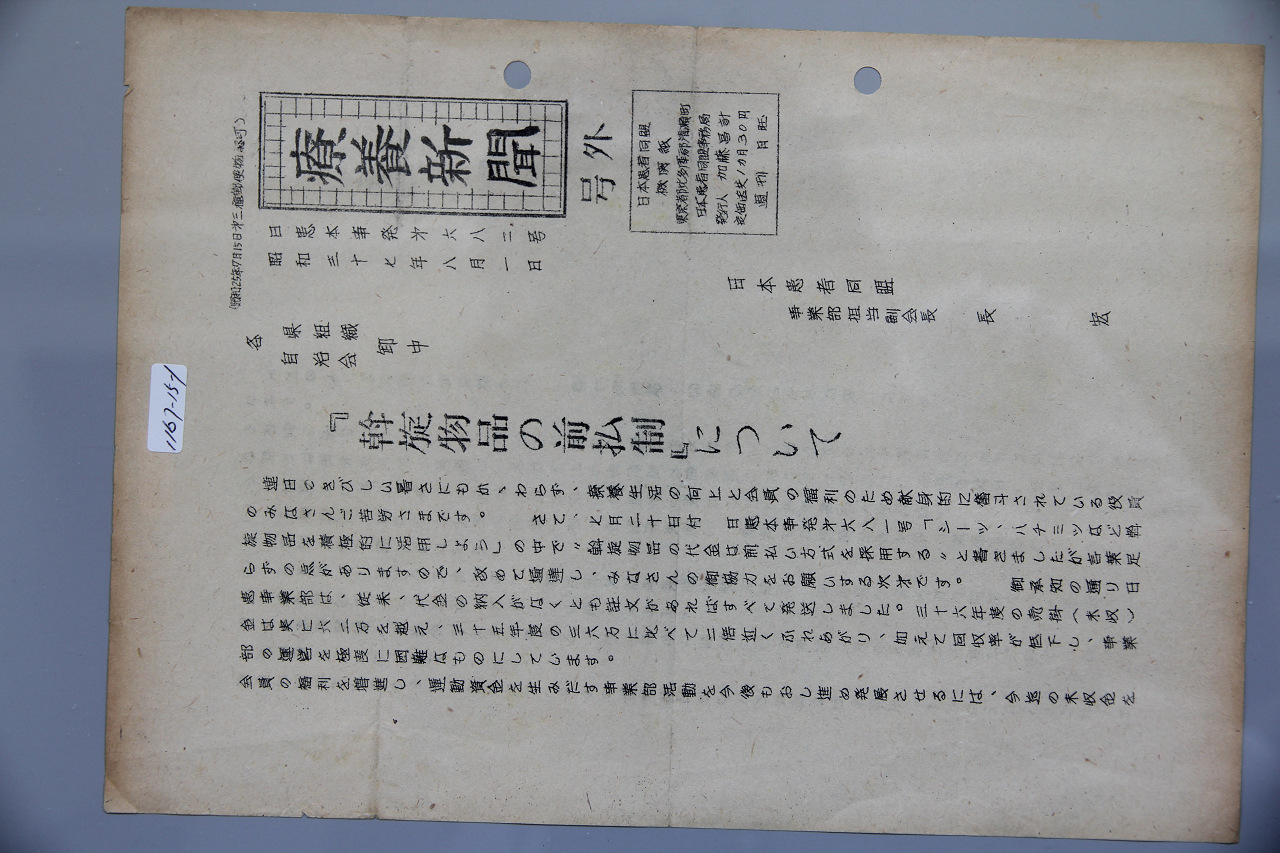 (昭和25年7月15日第三種郵便物認可)
療養新聞
号外
日本患者同盟
機関紙
東京都北多摩郡清瀬町
日本患者同盟事務局
発行人 加藤昌計
定価送共1カ月30円
週刊 日旺
日患本事発才六八二号
昭和三十七年八月一日
日本患者同盟
事業部担当副会長 長 宏
各 県組織
自治会 御中
『斡旋物品の前払制』について
連日できびしい暑さにもかゝわらず、療養生活の向上と会員の福利のため献身的に奮斗されている役員
のみなさんご苦労さまです。 さて、七月二十日付 日患本事発才六八一号「シーツ、ハチミツなど斡
旋物品を積極的に活用しよう」の中で〝斡旋物品の代金は前払い方式を採用する〟と書きましたが言葉足
らずの点がありますので、改めて通達し、みなさんの御協力をお願いする次才です。 御承知の通り日
患事業部は、従来、代金の納入がなくとも註文があればすべて発送しました。三十六年度の売掛(未収)
金は実に六二万を越え、三十五年度の三六万に比べて二倍近くふれあがり、加えて回収率が低下し、事業
部の運営を極度に困難なものにしています。
会員の福利を増進し、運動資金を生みだす事業部活動を今後もおし進め発展させるには、今迄の未収金を
1167-15-1